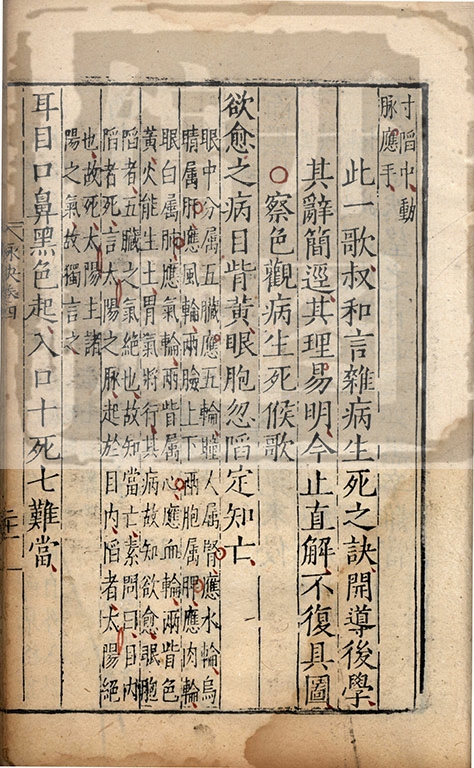 寸陷中動
脉應手
此一歌叔和言雜病生死之訣開導後學
其辭簡逕其理易明今止直解不復具圖
○察色觀病生死候歌
欲愈之病目眥黃眼胞忽陷定知亡
眼中分屬五臟應五輪瞳人屬腎應水輪烏
睛屬肝應風輪兩臉上下兩胞屬脾應肉輪
眼白屬肺應氣輪兩眥屬心應血輪兩眥色
黃火能生土胃氣將行其病故知欲愈眼胞
陷者五臟之氣絕也故知當亡素問曰目內
陷者死言太陽之脉起於目內陷者太陽絕
也故死太陽主諸
陽之氣故獨言之
耳目口鼻黑色起入口十死七難當
脉決卷四